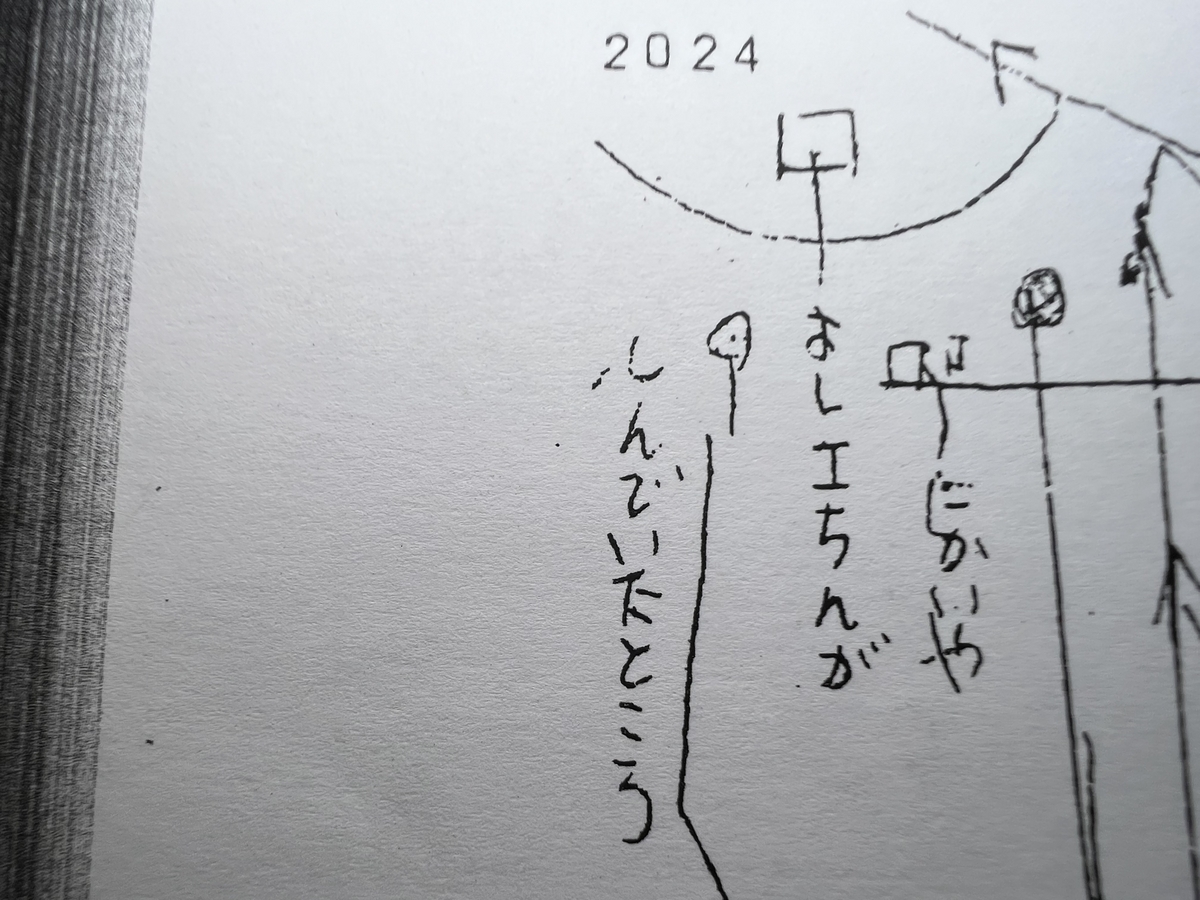 2024
にかいや
よしエちんが
しんでいたとこう